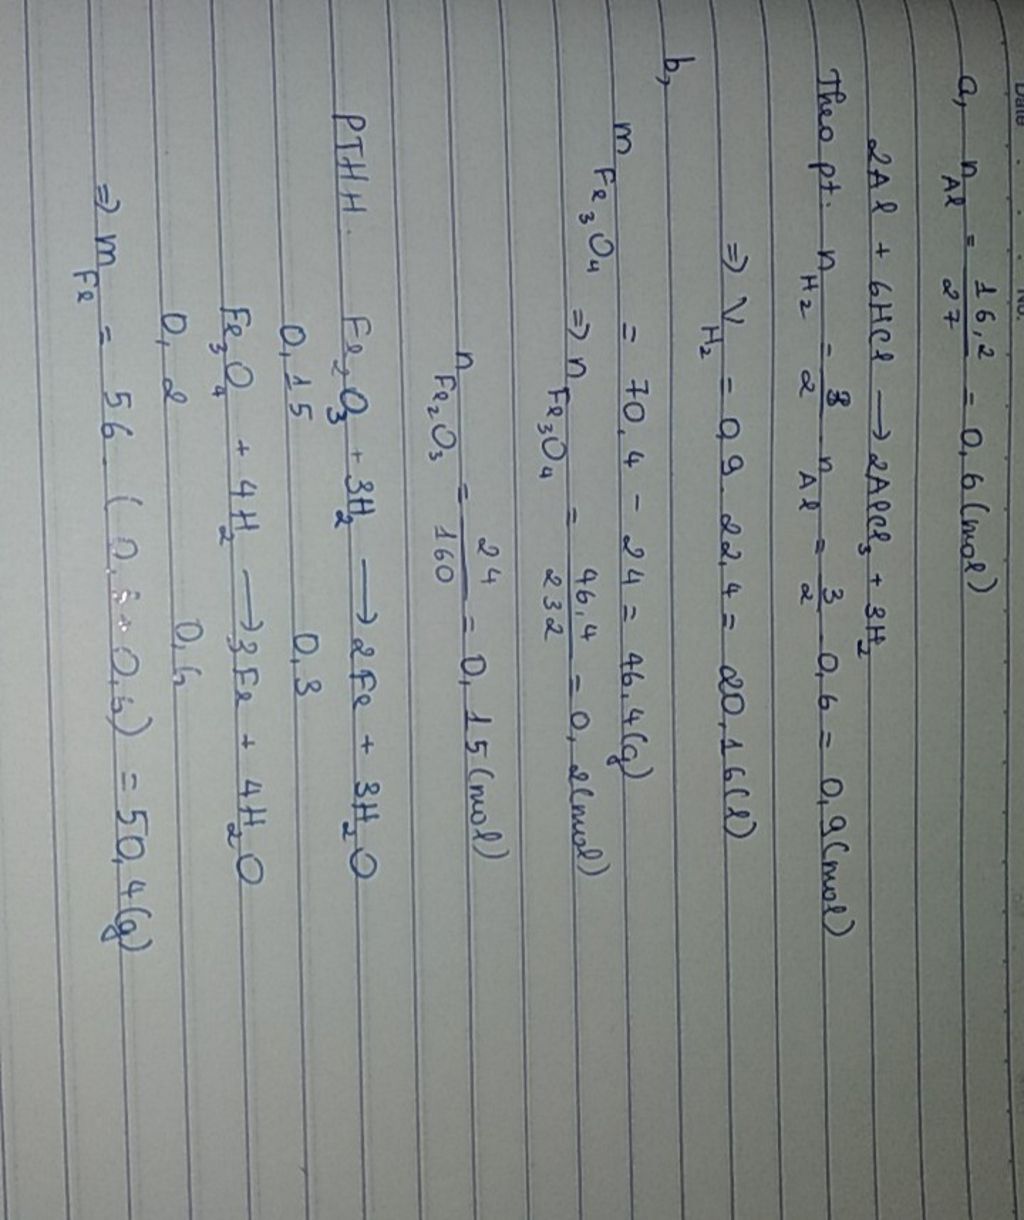 Date . . . No.
a, n Al = 16,2 / 27 = 0,6 (mol)
2Al + 6HCl → 2AlCl3 + 3H2
Theo pt: n H2 = 3/2 n Al = 3/2 . 0,6 = 0,9 (mol)
⇒ V H2 = 0,9 . 22,4 = 20,16 (l)
b,
m Fe3O4 = 70,4 - 24 = 46,4 (g)
⇒ n Fe3O4 = 46,4 / 232 = 0,2 (mol)
n Fe2O3 = 24 / 160 = 0,15 (mol)
PTHH: Fe2O3 + 3H2 → 2Fe + 3H2O
0,15 0,3
Fe3O4 + 4H2 → 3Fe + 4H2O
0,2 0,6
⇒ m Fe = 56 . ( 0, + 0,6) = 50,4 (g)